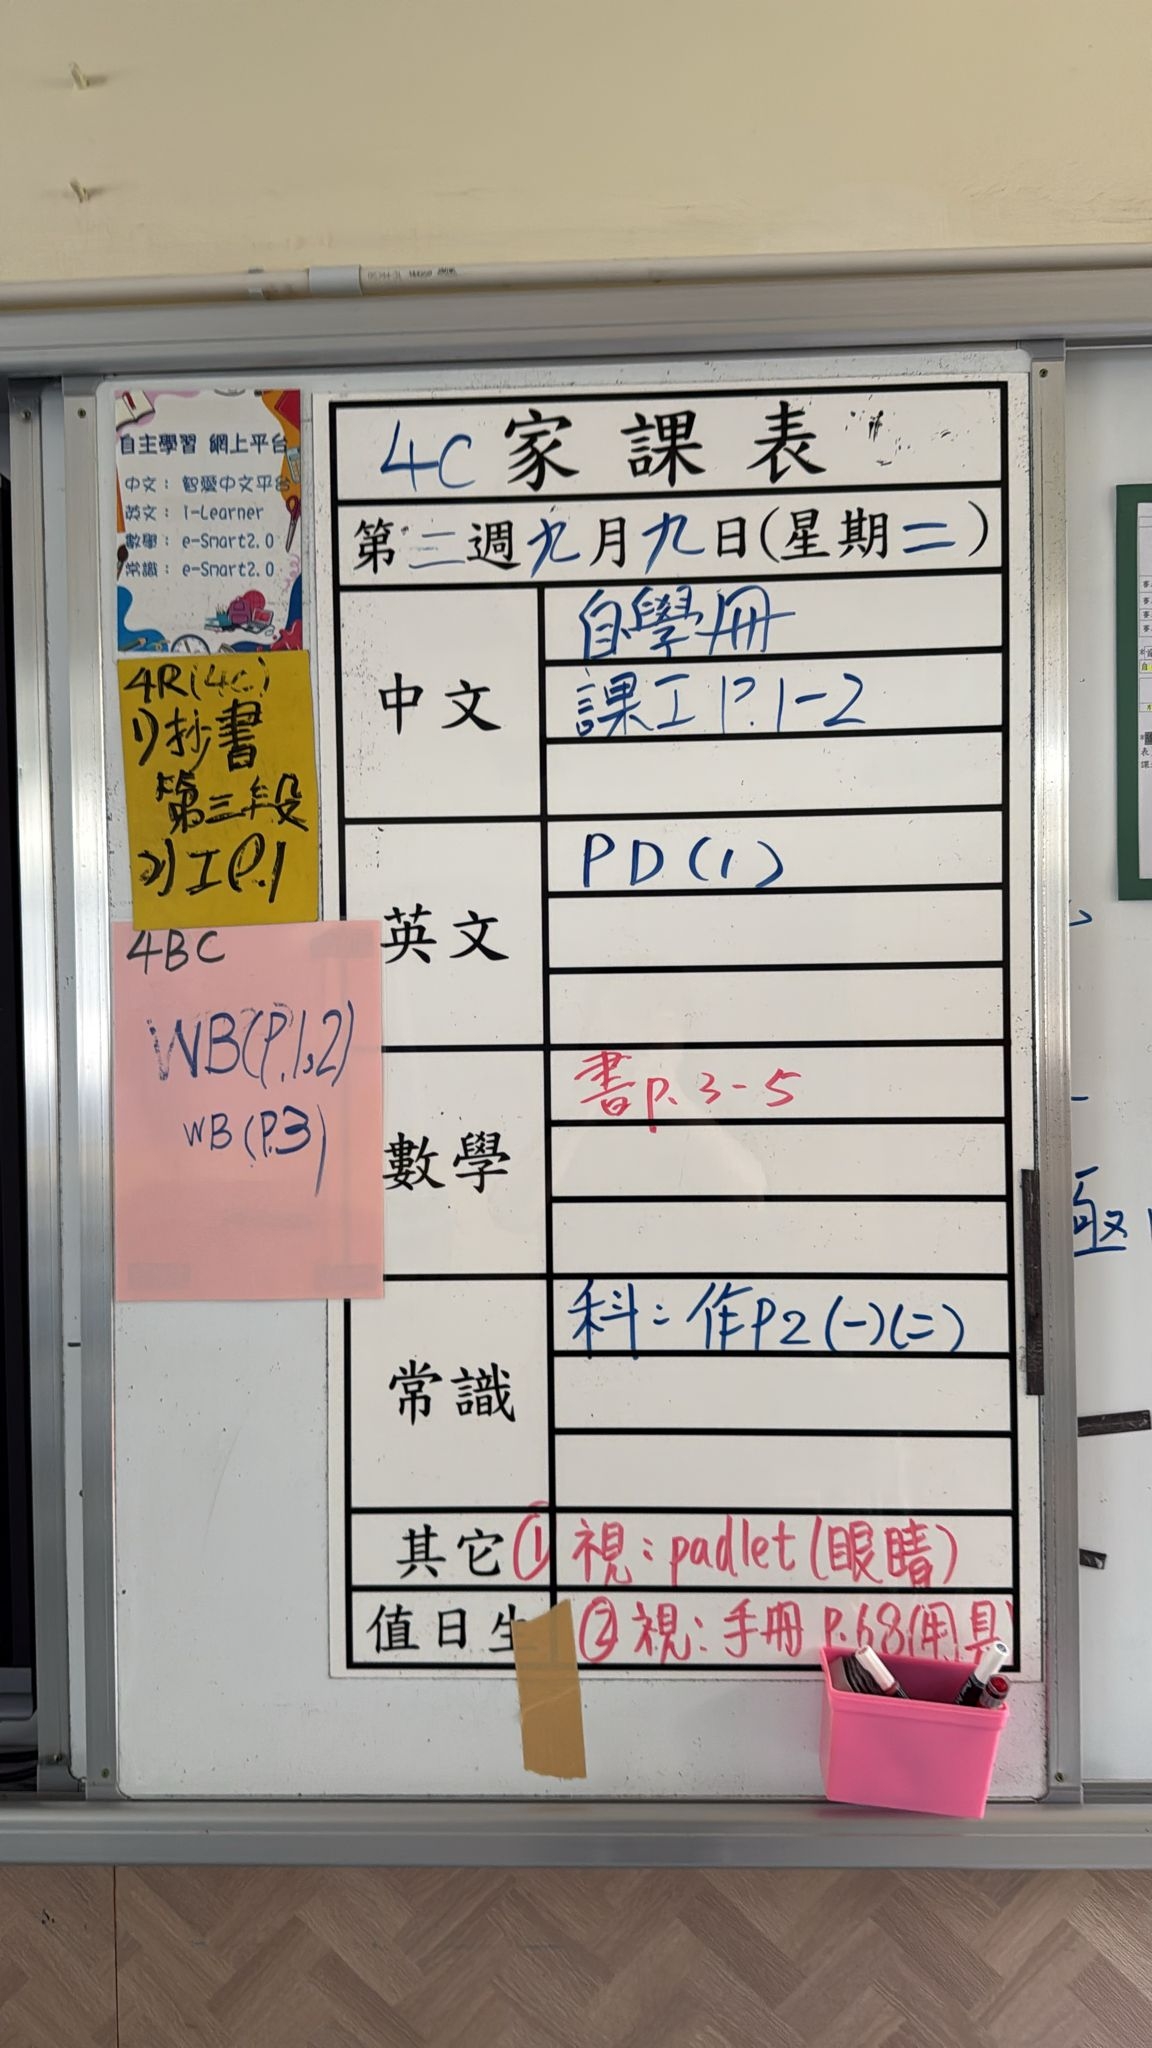 自主學習 網上平台
中文： 智愛中文平台
英文： i-Learner
數學： e-Smart2.0
常識： e-Smart2.0
4R(4C)
1)抄書
第三段
2)工P.1
4BC
WB(P.1,2)
WB(P.3)
4C 家課表
第二週九月九日(星期二)
中文
自學冊
課工P.1-2
英文
PD(1)
數學
書P.3-5
常識
科：作P2(一)(二)
其它 ① 視：padlet(眼睛)
值日生 ② 視：手冊P.68(用具)